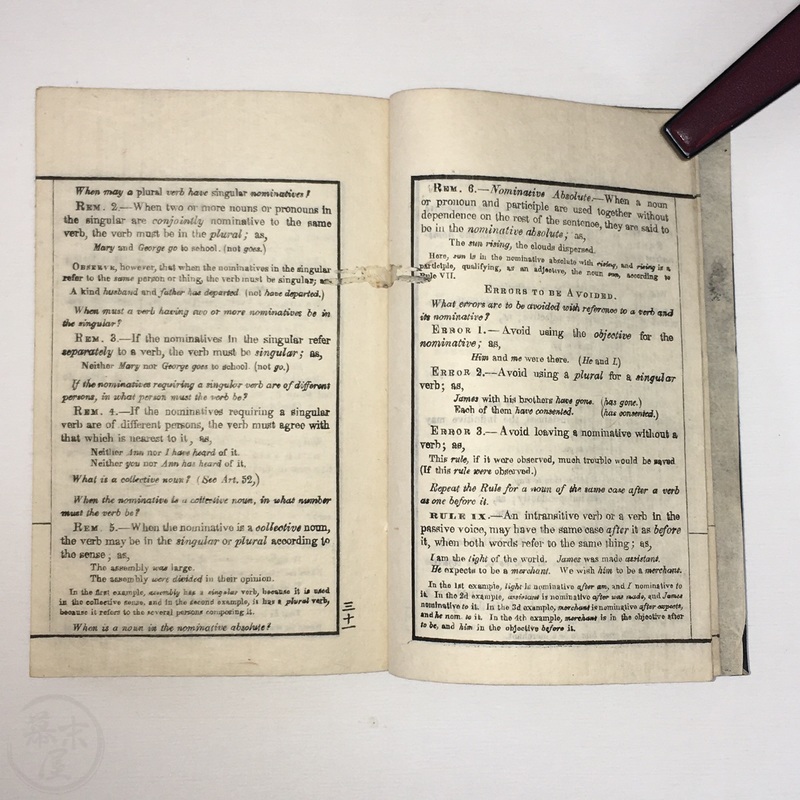 When may a plural verb have singular nominatives?
REM. 2.—When two or more nouns or pronouns in
the singular are conjointly nominative to the same
verb, the verb must be in the plural; as,
Mary and George go to school. (not goes.)
OBSERVE, however, that when the nominatives in the singular
refer to the same person or thing, the verb must be singular; as,
A kind husband and father has departed. (not have departed.)
When must a verb having two or more nominatives be in
the singular?
REM. 3.—If the nominatives in the singular refer
separately to a verb, the verb must be singular; as,
Neither Mary nor George goes to school. (not go.)
If the nominatives requiring a singular verb are of different
persons, in what person must the verb be?
REM. 4.—If the nominatives requiring a singular
verb are of different persons, the verb must agree with
that which is nearest to it, as,
Neither Ann nor I have heard of it.
Neither you nor Ann has heard of it.
What is a collective noun? (See Art. 52,)
When the nominative is a collective noun, in what number
must the verb be?
REM 5.—When the nominative is a collective noun,
the verb may be in the singular or plural according to
the sense; as,
The assembly was large.
The assembly were divided in their opinion.
In the first example, assembly has a singular verb, because it is used
in the collective sense, and in the second example, it has a plural verb,
because it refers to the several persons composing it.
When is a noun in the nominative absolute?
三十一
REM. 6.—Nominative Absolute.—When a noun
or pronoun and participle are used together without
dependence on the rest of the sentence, they are said to
be in the nominative absolute; as,
The sun rising, the clouds dispersed.
Here, sun is in the nominative absolute with rising, and rising is a
participle, qualifying, as an adjective, the noun sun, according to
Rule VII.
ERRORS TO BE AVOIDED.
What errors are to be avoided with reference to a verb and
its nominative?
ERROR 1.—Avoid using the objective for the
nominative; as,
Him and me were there. (He and I.)
ERROR 2.—Avoid using a plural for a singular
verb; as,
James with his brothers have gone. (has gone.)
Each of them have consented. (has consented.)
ERROR 3.—Avoid leaving a nominative without a
verb; as,
This rule, if it were observed, much trouble would be saved
(If this rule were observed.)
Repeat the Rule for a noun of the same case after a verb
as one before it.
RULE IX.—An intransitive verb or a verb in the
passive voice, may have the same case after it as before
it, when both words refer to the same thing; as,
I am the light of the world. James was made assistant.
He expects to be a merchant. We wish him to be a merchant.
In the 1st example, light is nominative after am, and I nominative to
it. In the 2d example, assistant is nominative after was made, and James
nominative to it. In the 3d example, merchant is nominative after expects,
and he nom. to it. In the 4th example, merchant is in the objective after
to be, and him in the objective before it.
幕末屋